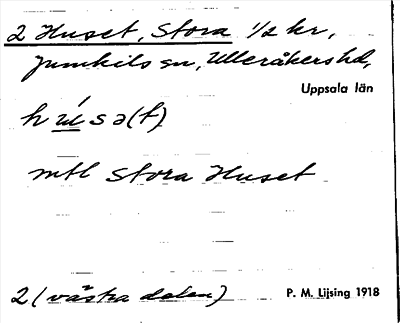 2 Huset, Stora 1/2 kr,
Jumkils sn, Ulleråkers hd,
Uppsala län
h ú s ə (t)
mtl Stora Huset
2 (västra delen)
P. M. Lijsing 1918